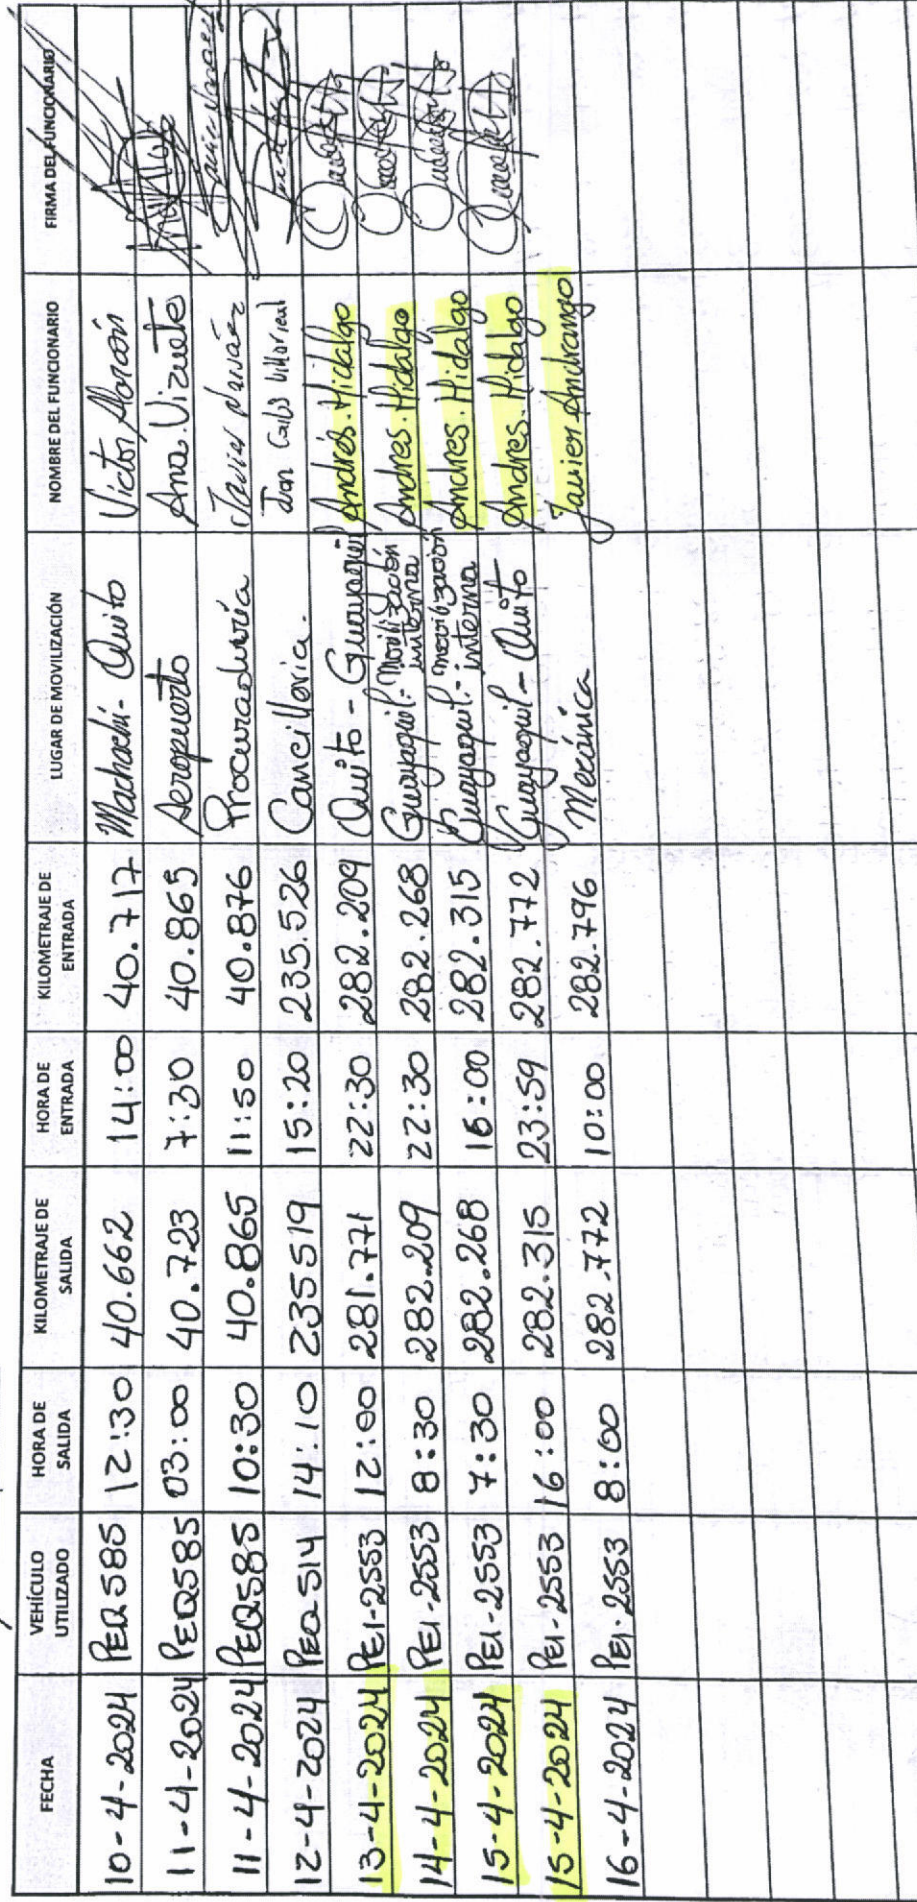 FECHA VEHÍCULO UTILIZADO HORA DE SALIDA KILOMETRAJE DE SALIDA HORA DE ENTRADA KILOMETRAJE DE ENTRADA LUGAR DE MOVILIZACIÓN NOMBRE DEL FUNCIONARIO FIRMA DEL FUNCIONARIO
10-4-2024 PEQ585 12:30 40.662 14:00 40.717 Machachi-Quito Victor
11-4-2024 PEQ585 03:00 40.723 7:30 40.865 Aeropuerto Ana Vizuete
11-4-2024 PEQ585 10:30 40.865 11:50 40.876 Procuraduría Javier
12-4-2024 PEQ514 14:10 235519 15:20 235.526 Cancillería. Juan Carlos Villarreal
13-4-2024 PEI-2553 12:00 281.771 22:30 282.209 Quito - Guayaquil Andrés. Hidalgo
14-4-2024 PEI-2553 8:30 282.209 22:30 282.268 Guayaquil-Movilización interna Andres. Hidalgo
15-4-2024 PEI-2553 7:30 282.268 16:00 282.315 Guayaquil-movilización interna Andres. Hidalgo
15-4-2024 PEI-2553 16:00 282.315 23:59 282.772 Guayaquil-Quito Andres. Hidalgo
16-4-2024 PEI-2553 8:00 282.772 10:00 282.796 Mecánica Javier Andrango